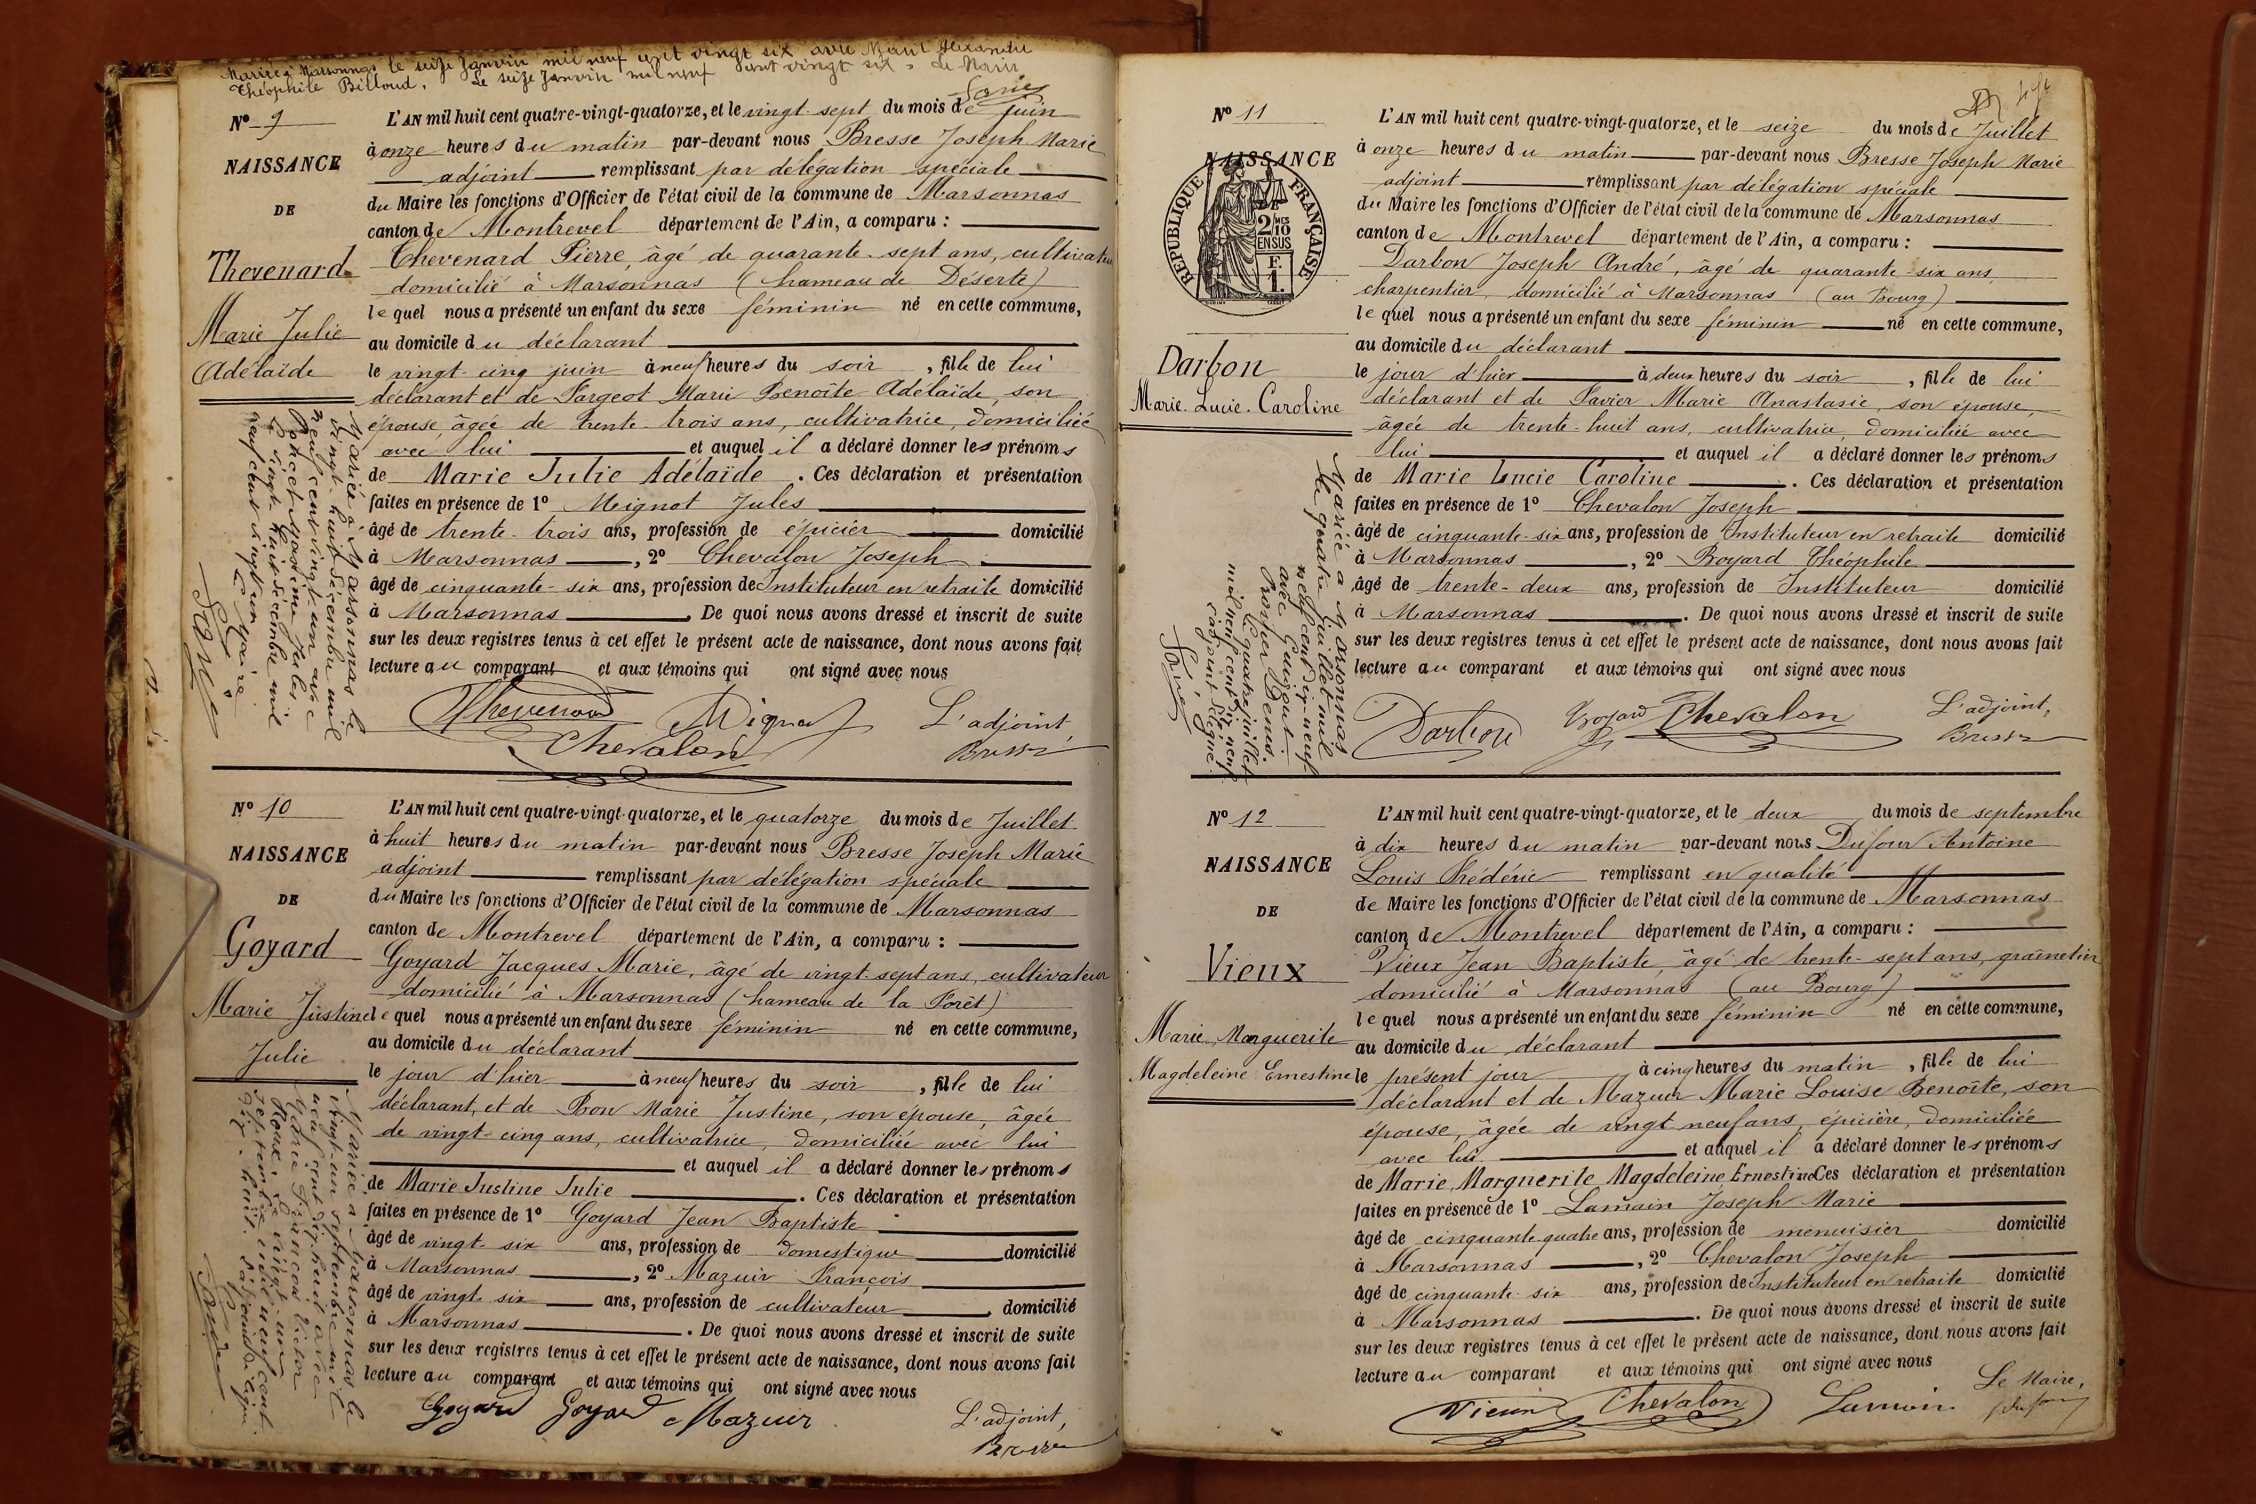 Mariée à Marsonnas le seize Janvier mil neuf cent vingt six avec Alexandre
Théophile Billoud. Le seize Janvier mil neuf cent vingt six. Le Maire
N° 9
NAISSANCE
DE
Thevenard
Marie Julie
Adélaïde
L'AN mil huit cent quatre-vingt-quatorze, et le vingt-sept du mois de juin
à onze heures du matin par-devant nous Bresse Joseph Marie
adjoint remplissant par délégation spéciale
du Maire les fonctions d'Officier de l'état civil de la commune de Marsonnas
canton de Montrevel département de l'Ain, a comparu :
Thevenard Pierre, âgé de quarante-sept ans, cultivateur
domicilié à Marsonnas (hameau de Déserte)
lequel nous a présenté un enfant du sexe féminin né en cette commune,
au domicile du déclarant
le vingt-cinq juin à neuf heures du soir, fille de lui
déclarant et de Fargeot Marie Benoîte Adélaïde, son
épouse, âgée de trente-trois ans, cultivatrice, domiciliée
avec lui et auquel il a déclaré donner les prénoms
de Marie Julie Adélaïde. Ces déclaration et présentation
faites en présence de 1° Meignot Jules
âgé de trente-trois ans, profession de épicier domicilié
à Marsonnas, 2° Chevalon Joseph
âgé de cinquante-six ans, profession de Instituteur en retraite domicilié
à Marsonnas. De quoi nous avons dressé et inscrit de suite
sur les deux registres tenus à cet effet le présent acte de naissance, dont nous avons fait
lecture au comparant et aux témoins qui ont signé avec nous
Thevenard Mignot L'adjoint,
Chevalon Bresse
Mariée à Marsonnas le
vingt-huit décembre mil
neuf cent vingt-un avec
Poncet Maxime Jules
Le vingt-huit décembre mil
neuf cent vingt-un
Le Maire
N° 10
NAISSANCE
DE
Goyard
Marie Justine
Julie
L'AN mil huit cent quatre-vingt-quatorze, et le quatorze du mois de Juillet
à huit heures du matin par-devant nous Bresse Joseph Marie
adjoint remplissant par délégation spéciale
du Maire les fonctions d'Officier de l'état civil de la commune de Marsonnas
canton de Montrevel département de l'Ain, a comparu :
Goyard Jacques Marie, âgé de vingt-sept ans, cultivateur
domicilié à Marsonnas (hameau de la Forêt)
lequel nous a présenté un enfant du sexe féminin né en cette commune,
au domicile du déclarant
le jour d'hier à neuf heures du soir, fille de lui
déclarant, et de Bon Marie Justine, son épouse, âgée
de vingt-cinq ans, cultivatrice, domiciliée avec lui
et auquel il a déclaré donner les prénoms
de Marie Justine Julie. Ces déclaration et présentation
faites en présence de 1° Goyard Jean Baptiste
âgé de vingt-six ans, profession de domestique domicilié
à Marsonnas, 2° Mazuir François
âgé de vingt-six ans, profession de cultivateur, domicilié
à Marsonnas. De quoi nous avons dressé et inscrit de suite
sur les deux registres tenus à cet effet le présent acte de naissance, dont nous avons fait
lecture au comparant et aux témoins qui ont signé avec nous
Goyard Goyard Mazuir L'adjoint,
Bresse
Mariée à Marsonnas le
vingt-un septembre mil
neuf cent dix-huit avec
Le vingt-un
septembre mil neuf cent
dix-huit. L'adjoint délégué.
N° 11
NAISSANCE
DE
RÉPUBLIQUE FRANÇAISE
2/10 MES
EN SUS
F.
1.
Darbon
Marie-Lucie-Caroline
L'AN mil huit cent quatre-vingt-quatorze, et le seize du mois de Juillet
à onze heures du matin par-devant nous Bresse Joseph Marie
adjoint remplissant par délégation spéciale
du Maire les fonctions d'Officier de l'état civil de la commune de Marsonnas
canton de Montrevel département de l'Ain, a comparu :
Darbon Joseph André, âgé de quarante-six ans,
charpentier, domicilié à Marsonnas (au Bourg)
lequel nous a présenté un enfant du sexe féminin né en cette commune,
au domicile du déclarant
le jour d'hier à deux heures du soir, fille de lui
déclarant et de Savier Marie Anastasie, son épouse,
âgée de trente-huit ans, cultivatrice, domiciliée avec
lui et auquel il a déclaré donner les prénoms
de Marie Lucie Caroline. Ces déclaration et présentation
faites en présence de 1° Chevalon Joseph
âgé de cinquante-six ans, profession de Instituteur en retraite domicilié
à Marsonnas, 2° Boyard Théophile
âgé de trente-deux ans, profession de Instituteur domicilié
à Marsonnas. De quoi nous avons dressé et inscrit de suite
sur les deux registres tenus à cet effet le présent acte de naissance, dont nous avons fait
lecture au comparant et aux témoins qui ont signé avec nous
Darbon Boyard Chevalon L'adjoint,
Bresse
Mariée à Marsonnas
le quatre juillet mil
neuf cent dix-neuf
avec
Le quatre juillet
mil neuf cent dix-neuf
L'adjoint délégué.
N° 12
NAISSANCE
DE
Vieux
Marie Marguerite
Magdeleine Ernestine
L'AN mil huit cent quatre-vingt-quatorze, et le deux du mois de septembre
à dix heures du matin par-devant nous Dufour Antoine
Louis Frédéric remplissant en qualité
de Maire les fonctions d'Officier de l'état civil de la commune de Marsonnas
canton de Montrevel département de l'Ain, a comparu :
Vieux Jean Baptiste, âgé de trente-sept ans, grainetier
domicilié à Marsonnas (au Bourg)
lequel nous a présenté un enfant du sexe féminin né en cette commune,
au domicile du déclarant
le présent jour à cinq heures du matin, fille de lui
déclarant et de Mazuir Marie Louise Benoîte, son
épouse, âgée de vingt-neuf ans, épicière, domiciliée
avec lui et auquel il a déclaré donner les prénoms
de Marie Marguerite Magdeleine Ernestine Ces déclaration et présentation
faites en présence de 1° Lamain Joseph Marie
âgé de cinquante-quatre ans, profession de menuisier domicilié
à Marsonnas, 2° Chevalon Joseph
âgé de cinquante-six ans, profession de Instituteur en retraite domicilié
à Marsonnas. De quoi nous avons dressé et inscrit de suite
sur les deux registres tenus à cet effet le présent acte de naissance, dont nous avons fait
lecture au comparant et aux témoins qui ont signé avec nous
Vieux Chevalon Lamain Le Maire,
Dufour